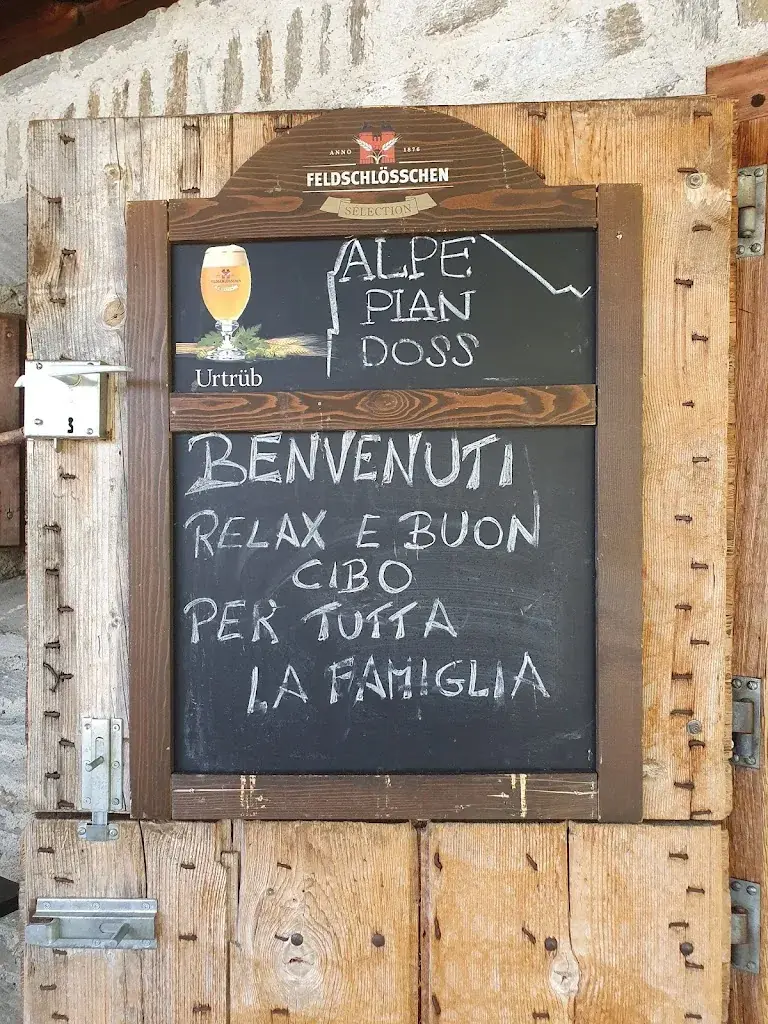 ANNO 1876
FELDSCHLÖSSCHEN
SELECTION
ALPE
PIAN
DOSS
Urtrüb
BENVENUTI
RELAX E BUON
CIBO
PER TUTTA
LA FAMIGLIA
3